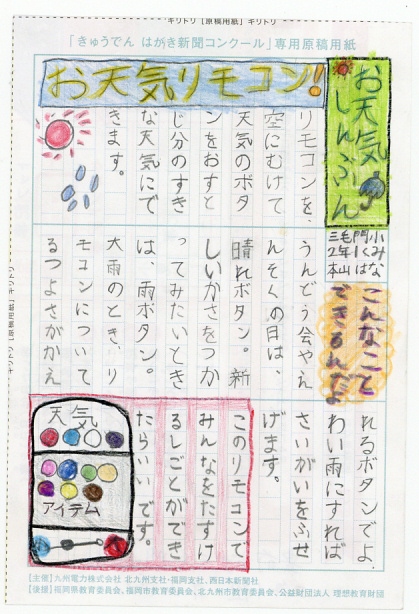 キリトリ【原稿用紙】キリトリ
「きゅうでん はがき新聞コンクール」専用原稿用紙
お天気しんぶん
お天気リモコン！
リモコンを、
空にむけて
天気のボタ
ンをおすと
じ分のすき
な天気にで
きます。
こんなこと
できるんだよ
うんどう会やえ
んそくの日は、
晴れボタン。新
しいかさをつか
ってみたいとき
は、雨ボタン。
大雨のとき、リ
モコンについて
るつよさがかえ
れるボタンでよ
わい雨にすれば
さいがいをふせ
げます。
このリモコンで
みんなをたすけ
るしごとができ
たらいいです。
天気
アイテム
キリトリ【原稿用紙】キリトリ
【主催】九州電力株式会社 北九州支社・福岡支社、西日本新聞社
【後援】福岡県教育委員会、福岡市教育委員会、北九州市教育委員会、公益財団法人 理想教育財団